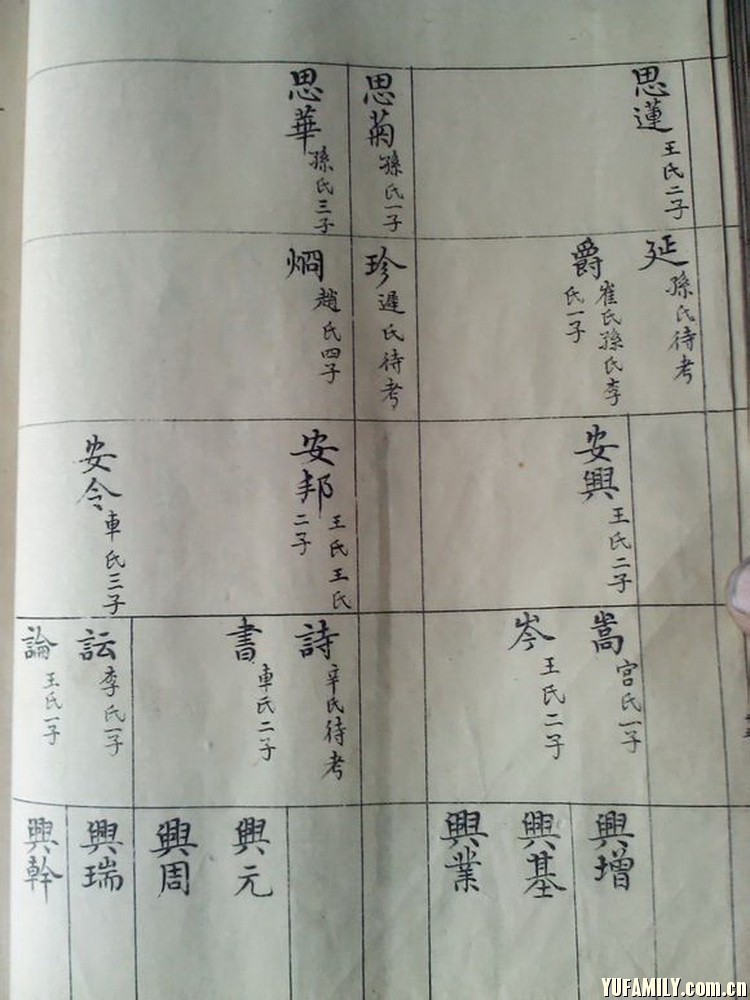 思蓮 王氏二子
思菊 孫氏一子
思華 孫氏三子
延 孫氏待考
爵 崔氏孫氏李
氏一子
珍 遲氏待考
烱 趙氏四子
安興 王氏二子
安邦 王氏王氏
二子
安令 車氏三子
嵩 宮氏一子
岑 王氏二子
詩 辛氏待考
書 車氏二子
訟 李氏一子
論 王氏一子
興增
興基
興業
興元
興周
興瑞
興幹
YUFAMILY.com.cn